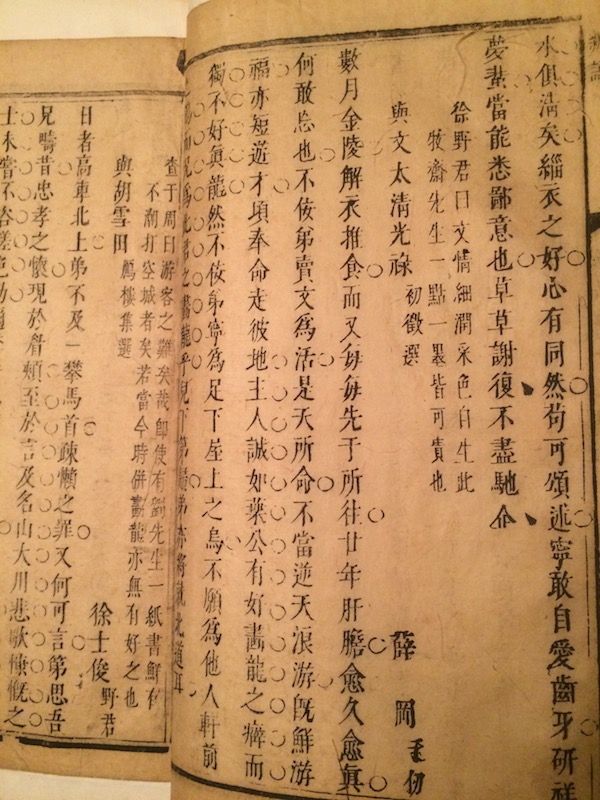 水俱清矣緇衣之好心有同然苟可頌述寧敢自愛齒牙研祥
夢當能悉鄙意也草草謝復不盡馳企
徐野君曰文情細潤采色自生此
牧齋先生一點一墨皆可貴也
與文太清光祿 初徵選 薛岡千仞
數月金陵解衣推食而又每每先于所往廿年肝膽愈久愈眞
何敢忘也不佞弟賣文為活是天所命不當逆天浪游旣鮮游
福亦短遊才頃奉命走彼地主人誠如葉公有好畫龍之癖而
獨不好眞龍然不佞弟寧為足下屋上之烏不願為他人軒前
而況為此君之畫龍乎
查于周曰游客之難矣哉即使有劉先生一紙書鮮有
不潮打空城者矣若當今時併畫龍亦無有好之也
與胡雪田 鴈樓集選 徐士俊野君
日者高車北上弟不及一攀馬首疎懶之罪又何可言第思吾
兄疇昔忠孝之懷現於眉頰至於言及名山大川悲歌慷慨之
士未嘗不咨嗟